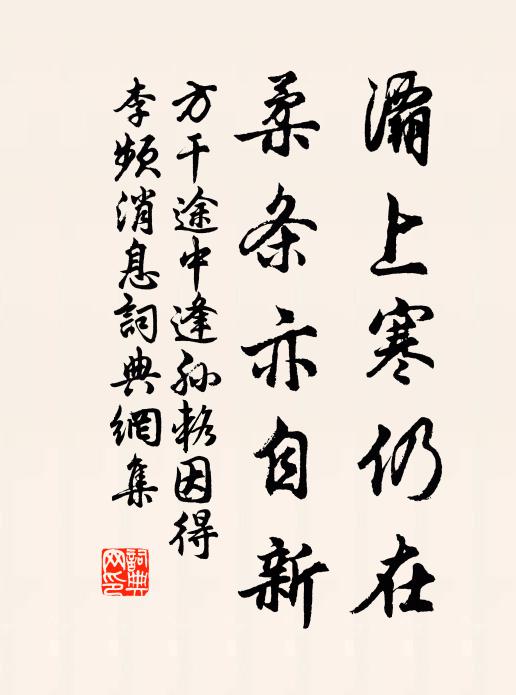 灞上寒仍在
柔条亦自新
方干途中逢孙辂因得
李频消息詞典網集
詞典网印